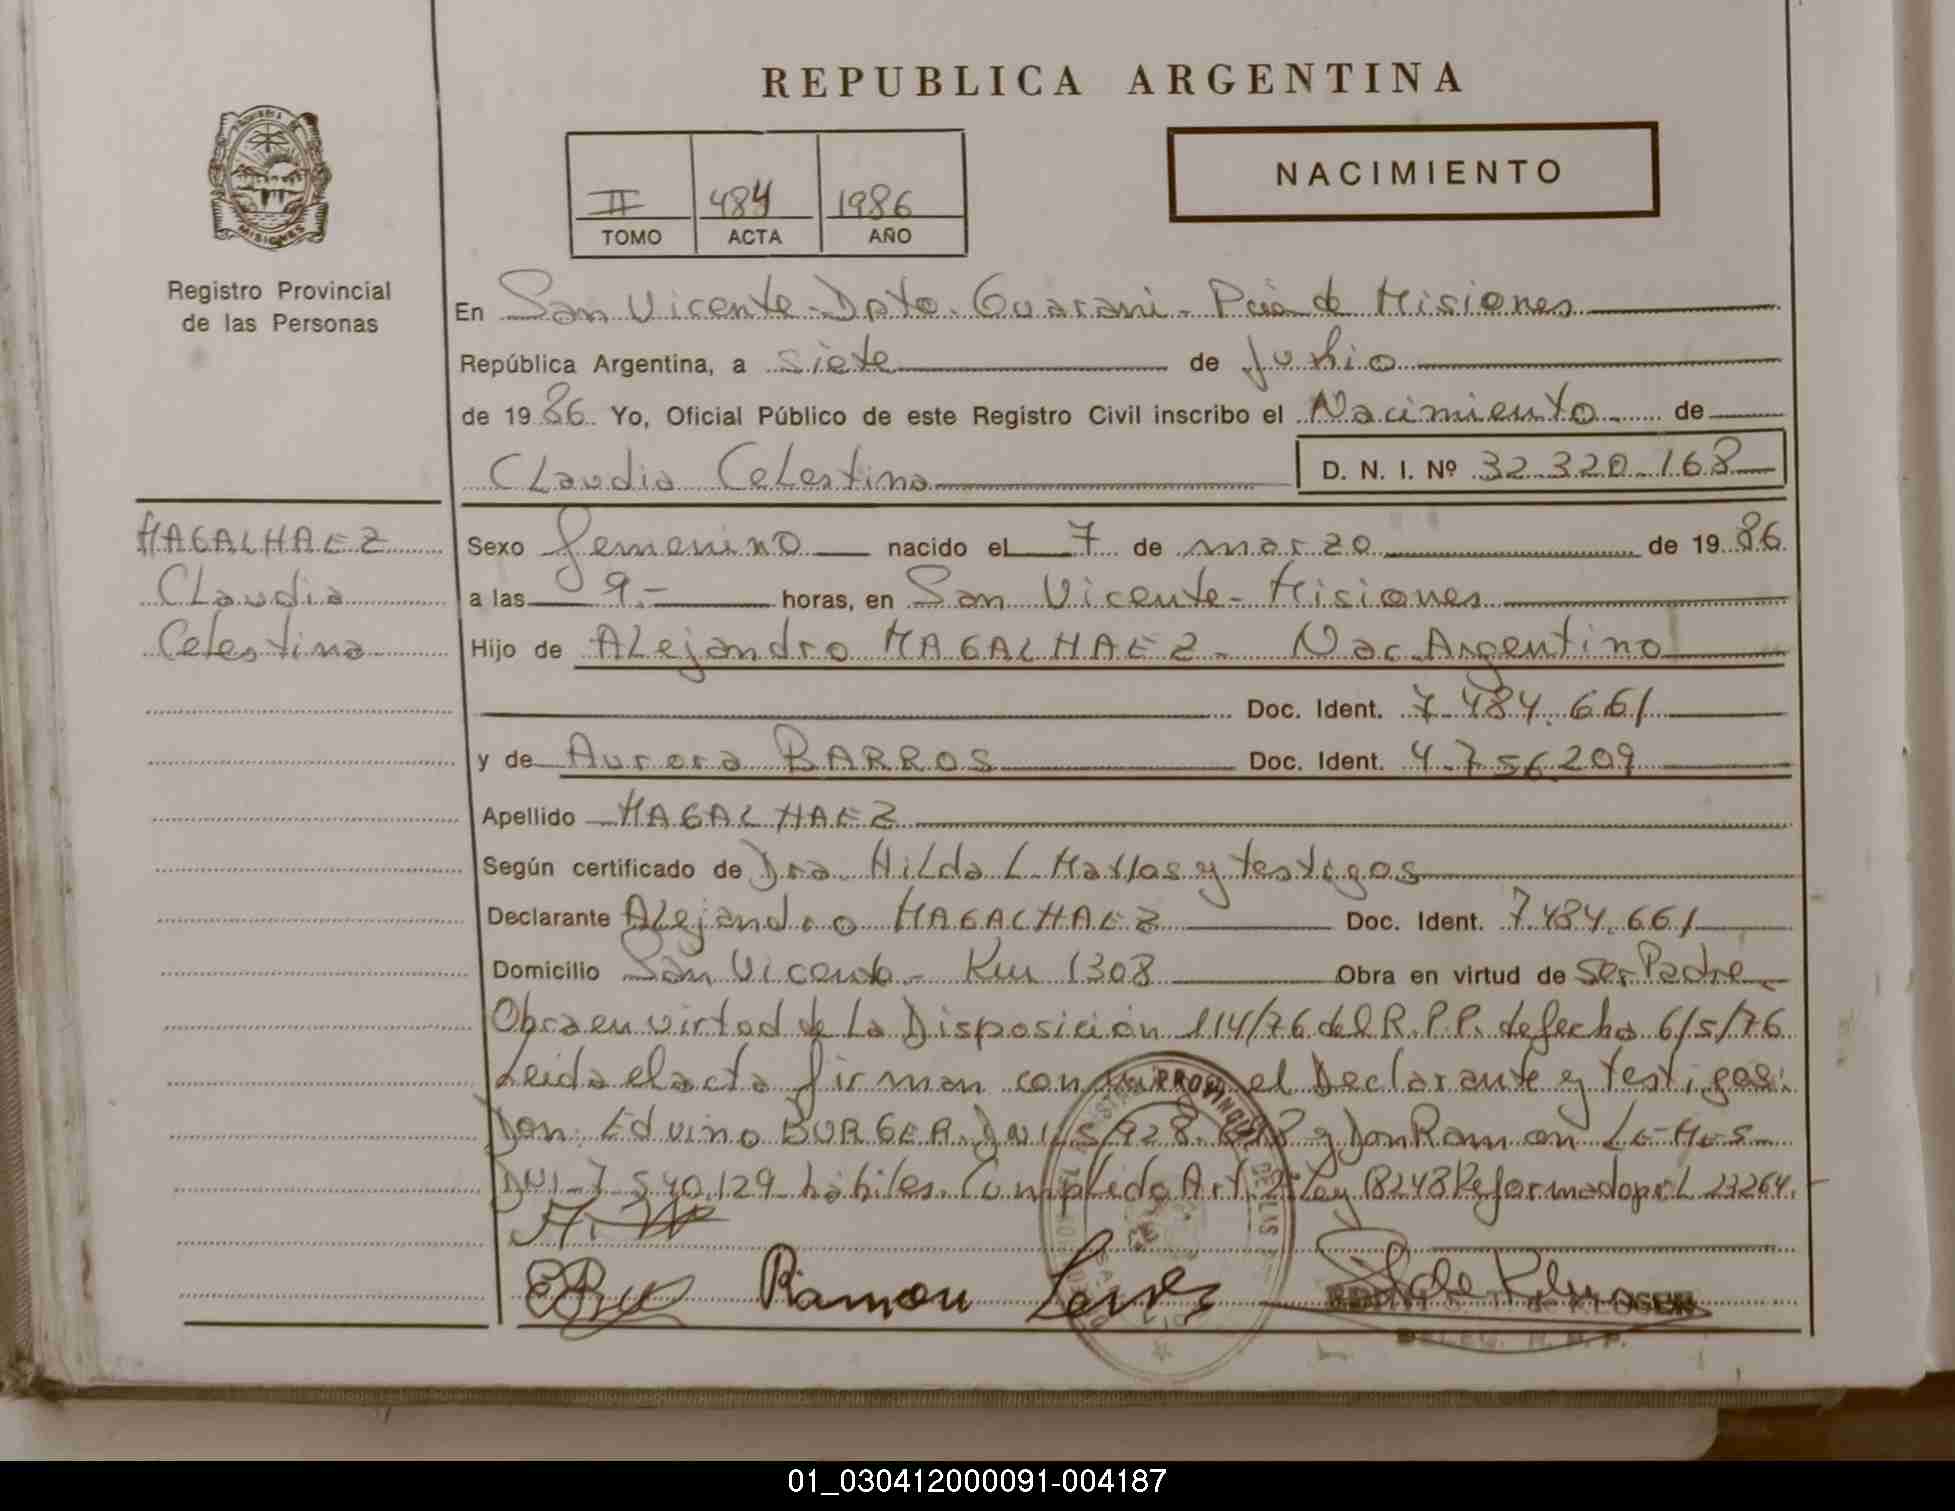 REPUBLICA ARGENTINA
NACIMIENTO
II 484 1986
TOMO ACTA AÑO
MISIONES
Registro Provincial
de las Personas
En San Vicente-Dpto. Guarani. Pcia de Misiones
República Argentina, a siete de Junio
de 1986. Yo, Oficial Público de este Registro Civil inscribo el Nacimiento de
Claudia Celestina D. N. I. Nº 32.320.168
MAGALHAEZ
Claudia
Celestina
Sexo femenino nacido el 7 de marzo de 1986.
a las 9.- horas, en San Vicente- Misiones
Hijo de Alejandro MAGALHAEZ- Nac. Argentino
Doc. Ident. 7.484.661
y de Aurora BARROS Doc. Ident. 4.756.209
Apellido MAGALHAEZ
Según certificado de Dra. Hilda L. y testigos
Declarante Alejandro MAGALHAEZ Doc. Ident. 7.484.661
Domicilio San Vicente- Km 1308 Obra en virtud de ser Padre
Obra en virtud de la Disposición 114/76 del R.P.P. de fecha 6/5/76
Leida el acta firman el Declarante y testigos:
Don: Eduino BURGER. y Don Ramon LEMES
DNI-7.540.129 habiles. Cumplido Art. 2º Ley 18248 Reformado por L 23264.
Ramon Lemes
DELEG. R. P. P.
01_030412000091-004187